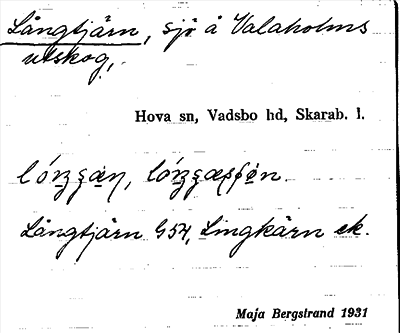 Långtjärn, sjö å Valaholms
utskog.
Hova sn, Vadsbo hd, Skarab. l.
Långtjärn G54, Lingkärn ek.
Maja Bergstrand 1931